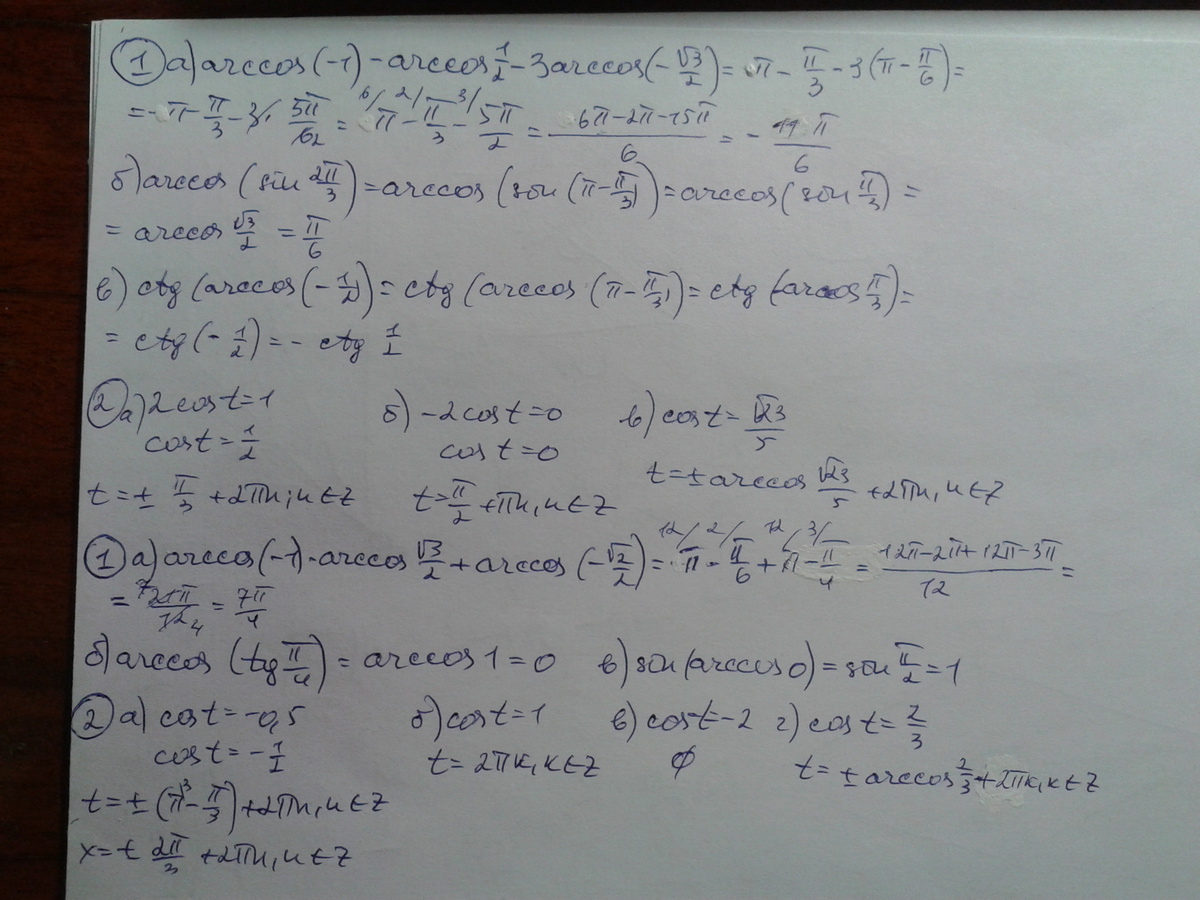 ① а) arccos(-1) - arccos 1/2 - 3arccos(-√3/2) = π - π/3 - 3(π - π/6) =
= π - π/3 - 3 · 5π/6 2 = 6/ π - 2/ π/3 - 3/ 5π/2 = 6π-2π-15π/6 = - 11π/6
б) arccos(sin 2π/3) = arccos(sin(π - π/3)) = arccos(sin π/3) =
= arccos √3/2 = π/6
в) ctg(arccos(-1/2)) = ctg(arccos(π - π/3)) = ctg(-arccos π/3) =
= ctg(-1/2) = - ctg 1/2
② а) 2cost=1 б) -2cost=0 в) cost = √23/5
cost = 1/2 cost=0
t = ± π/3 + 2πn; n∈Z t = π/2 + πn, n∈Z t = ± arccos √23/5 + 2πn, n∈Z
① а) arccos(-1) - arccos √3/2 + arccos(-√2/2) = 12/ π - 2/ π/6 + 12/ π - 3/ π/4 = 12π-2π+12π-3π/12 =
= 7 21π/12 4 = 7π/4
б) arccos(tg π/4) = arccos 1 = 0 в) sin(arccos 0) = sin π/2 = 1
② а) cost = -0,5 б) cost=1 в) cost=-2 г) cost = 2/3
cost = -1/2 t = 2πk, k∈Z ∅ t = ± arccos 2/3 + 2πk, k∈Z
t = ± (π 3 - π/3) + 2πn, n∈Z
x = ± 2π/3 + 2πn, n∈Z